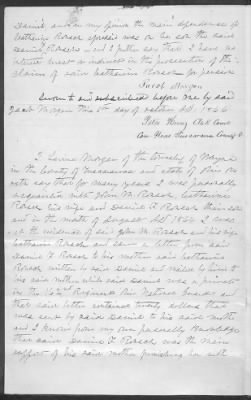 Daniel and in my opinion the main dependence of
Catharine Roach for support was on her son the said
Daniel Roach and I further say that I have no
interest direct or indirect in the prosecution of the
claim of said Catharine Roach for pension
Jacob Morgan
Sworn to and subscribed before me by said
Jacob Morgan this day of October AD 1866
Peter Clerk Court
Com Pleas Tuscarawas County O
I Lewis Morgan of the township of Wayne
in the County of Tuscarawas and State of Ohio on
oath say that for many years I was personally
acquainted with John M. Roach, Catharine
Roach his wife and Daniel F. Roach their son
and in the month of August AD 1864 I was
at the residence of said John M. Roach and his wife
Catharine Roach and saw a letter from said
Daniel F Roach to his mother said Catharine
Roach written by said Daniel and mailed by him to
his said mother while said Daniel was a private
in the Regiment Ohio National Guards and
that said letter contained twenty dollars that
was sent by said Daniel to his said mother
and I know from my own personally knowledge
that said Daniel F Roach was the main
support of his said mother furnishing her with